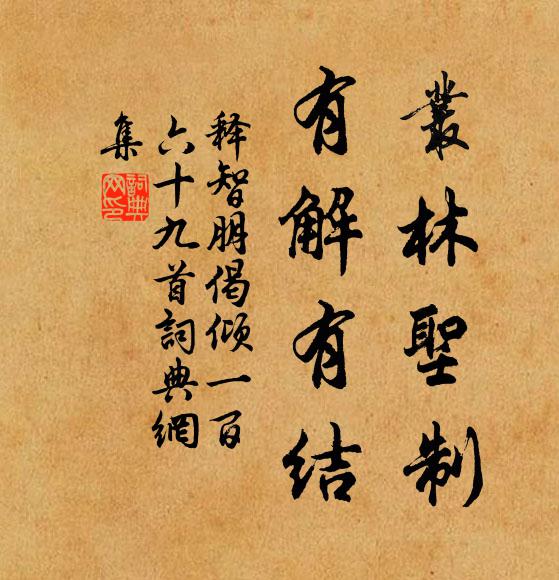 叢林聖制
有解有結
释智朋偈倾一百
六十九首詞典網
集
詞典網印